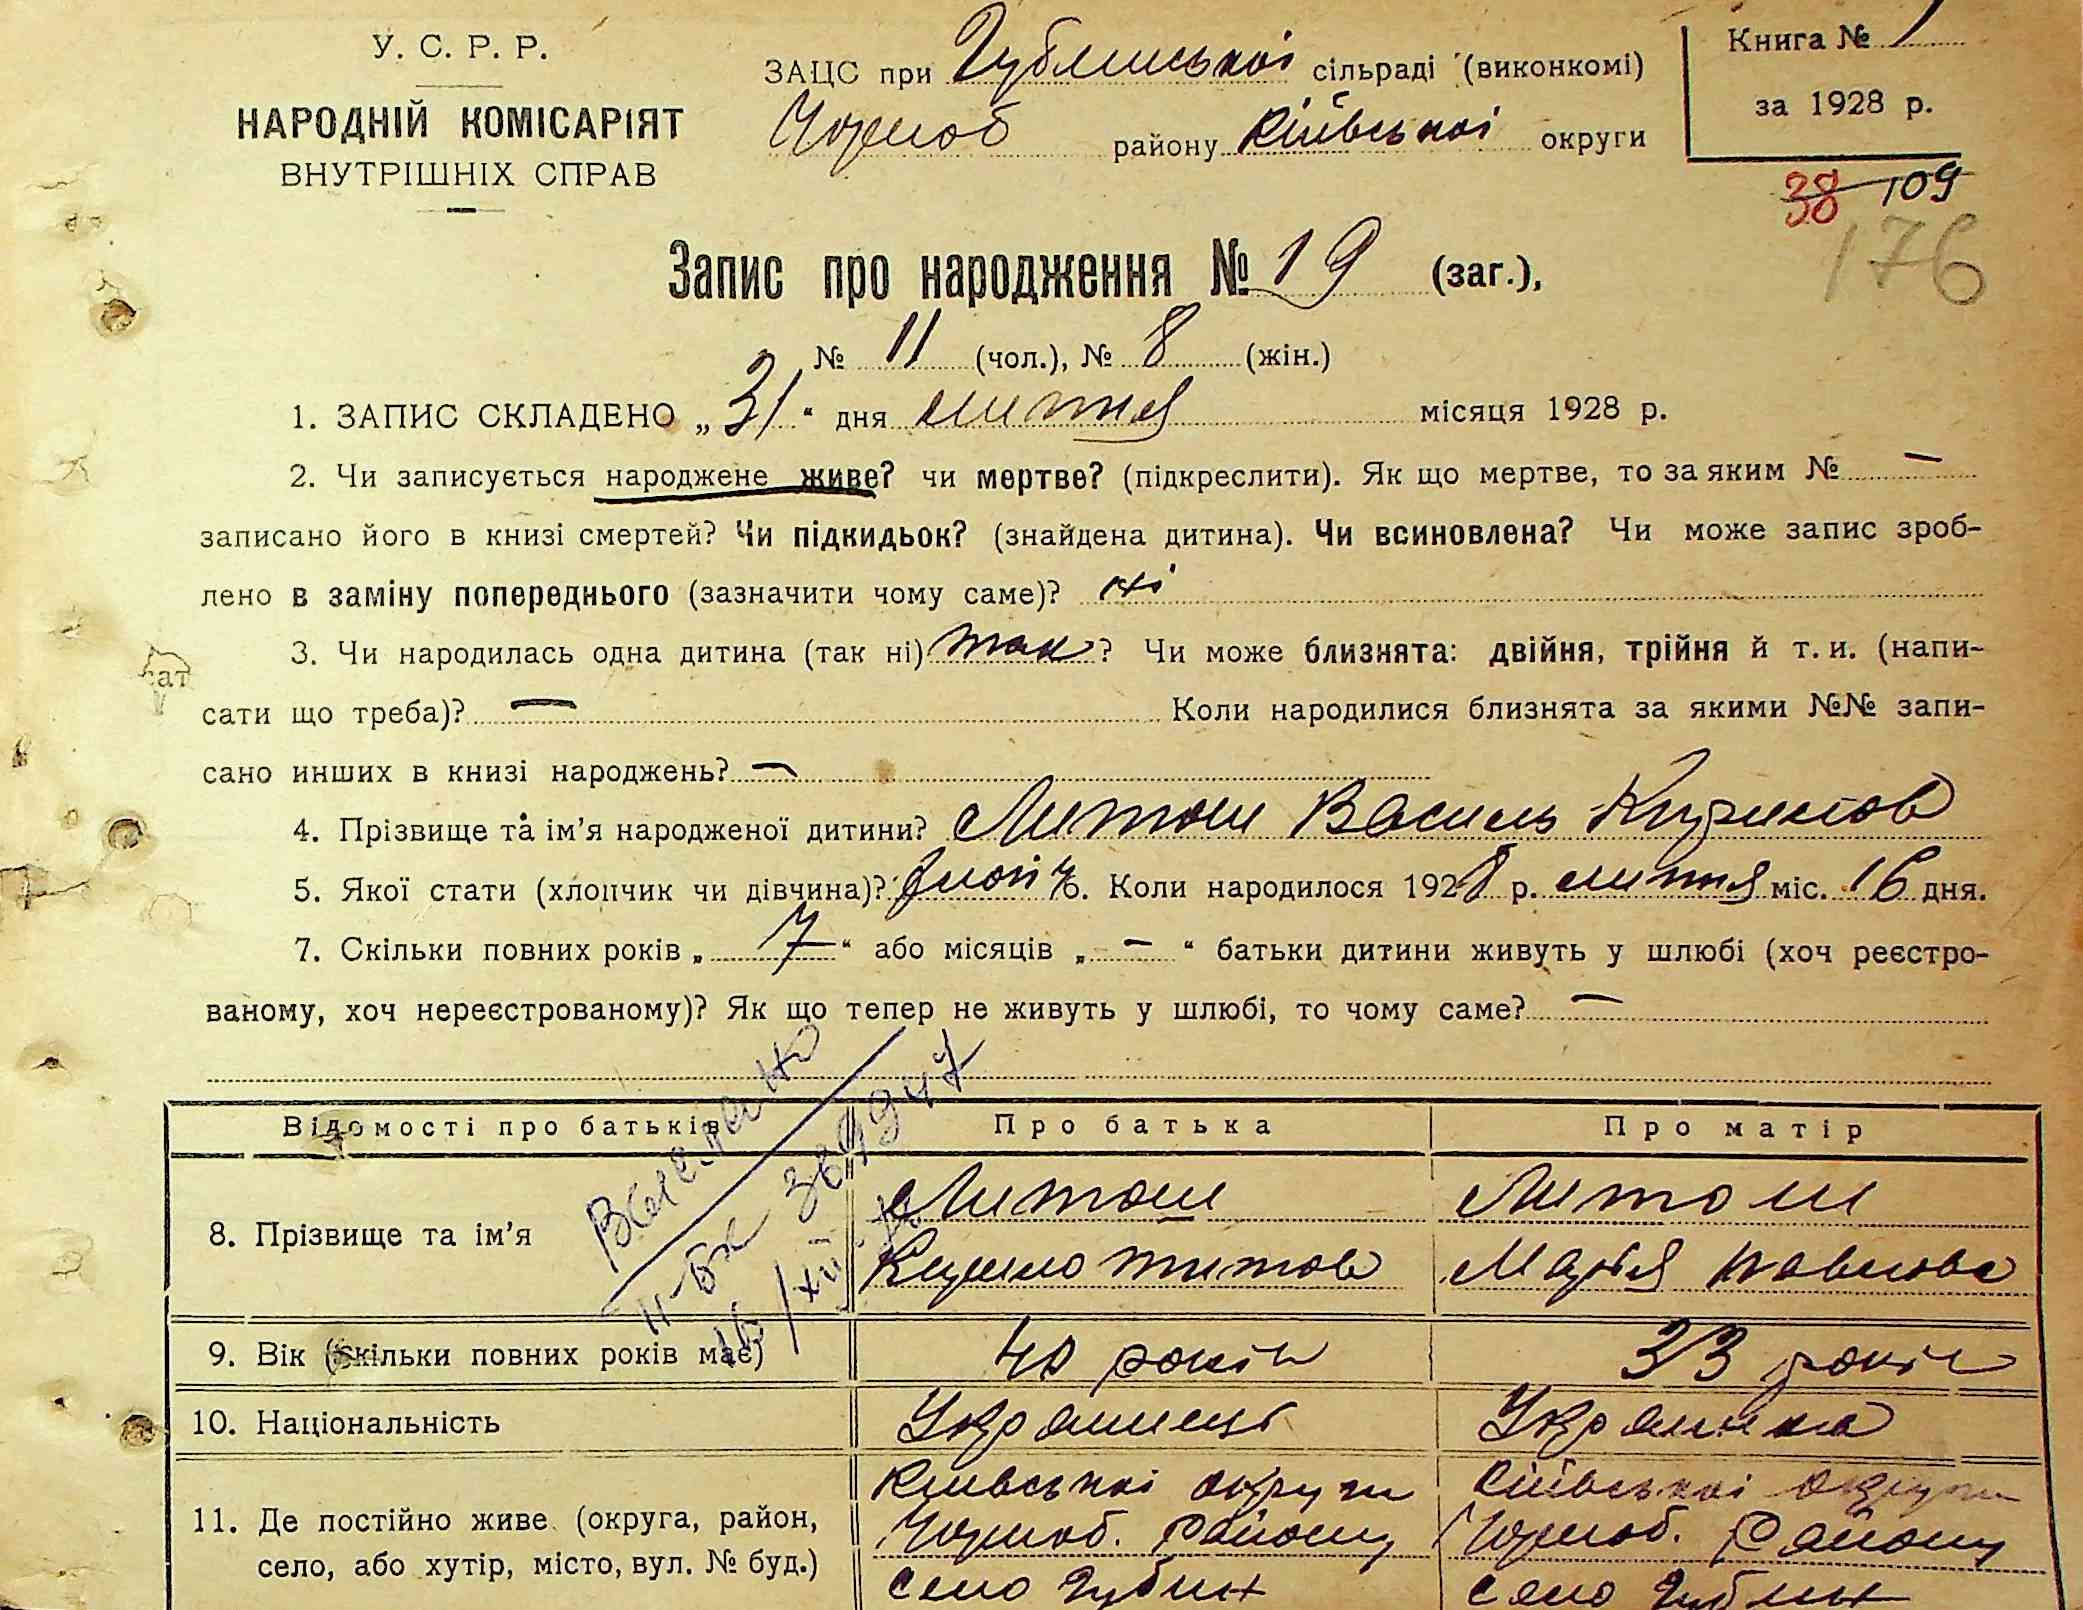 У. С. Р. Р.
НАРОДНІЙ КОМІСАРІЯТ
ВНУТРІШНІХ СПРАВ
ЗАЦС при Губинської сільраді (виконкомі)
Чорноб району Київської округи
Книга № 1
за 1928 р.
38 109
176
Запис про народження № 19 (заг.),
№ 11 (чол.), № 8 (жін.)
1. ЗАПИС СКЛАДЕНО „31“ дня липня місяця 1928 р.
2. Чи записується народжене живе? чи мертве? (підкреслити). Як що мертве, то за яким № —
записано його в книзі смертей? Чи підкидьок? (знайдена дитина). Чи всиновлена? Чи може запис зроб-
лено в заміну попереднього (зазначити чому саме)? ні
3. Чи народилась одна дитина (так ні) так? Чи може близнята: двійня, трійня й т. и. (напи-
сати що треба)? — Коли народилися близнята за якими №№ запи-
сано инших в книзі народжень? —
4. Прізвище та ім’я народженої дитини? Литош Василь Кирилов
5. Якої стати (хлопчик чи дівчина)? хлопч. Коли народилося 1928 р. липня міс. 16 дня.
7. Скільки повних років „ 7 “ або місяців „ — “ батьки дитини живуть у шлюбі (хоч реєстро-
ваному, хоч нереєстрованому)? Як що тепер не живуть у шлюбі, то чому саме? —
Відомості про батьків Про батька Про матір
8. Прізвище та ім’я
Литош
Кирило Титов
Литош
Марія Павлова
9. Вік (скільки повних років має) 40 років 33 років
10. Національність Українець Українка
11. Де постійно живе (округа, район,
село, або хутір, місто, вул. № буд.)
Київської округи
Чорноб. Району
село Губин
Київської округи
Чорноб. Району
село Губин